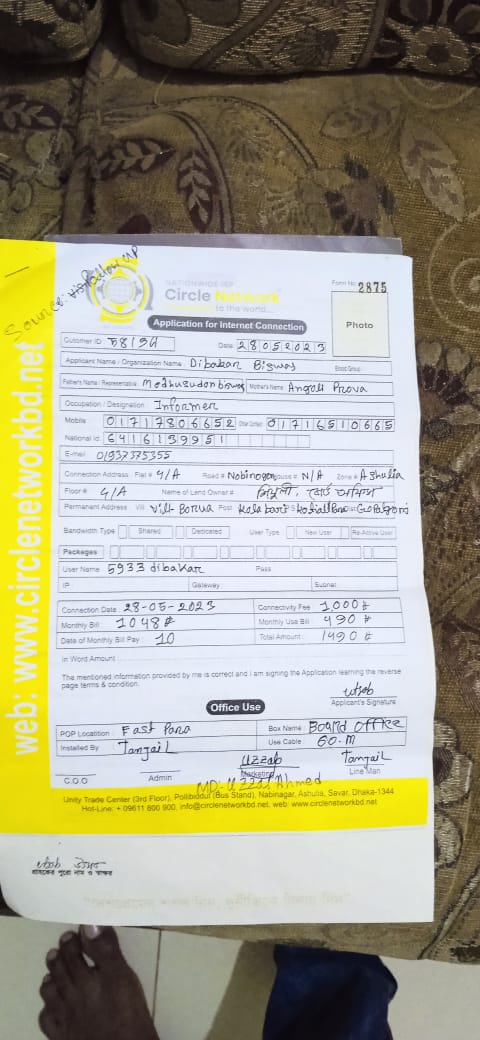 Source: Follow UP
NATIONWIDE ISP
Circle Network
to the world...
Form No. 2875
Application for Internet Connection
Photo
Customer ID :
Date: 28052023
Applicant Name / Organization Name : Dibakar Biswas Blood Group :
Father's Name / Representative : Modhusudon biswas Mother's Name : Angoli Prova
Occupation / Designation : Informer
Mobile 01717806652 Other Contact : 01716510665
National Id: 6416139951
E-mail : 01937375355
Connection Address Flat # 4/A Road # Nobinogon House # N/A Zone # Ashulia
Floor # 4/A Name of Land Owner #
Permanent Address Vill Vill: Borua Post
Bandwidth Type Shared Dedicated User Type : New User Re-Active User
Packages
User Name : 5933 dibakar Pass
IP Gateway: Subnet:
Connection Date : 28-05-2023 Connectivity Fee : 1,000
Monthly Bill : 1048 Monthly Use Bill : 490
Date of Monthly Bill Pay : 10 Total Amount : 1490
In Word Amount :
The mentioned information provided by me is correct and I am signing the Application learning the reverse page terms & condition.
Applicant's Signature
Office Use
POP Locatition : East Para Box Name : Board office
Installed By Tangail Use Cable 60-M
Uzzal Tangail
C.O.O Admin Marketing Line Man
MD. Uzzal Ahmed
Unity Trade Center (3rd Floor), Pollibiddut (Bus Stand), Nabinagar, Ashulia, Savar, Dhaka-1344
Hot-Line: + 09611 800 900, info@circlenetworkbd.net, web: www.circlenetworkbd.net
web: www.circlenetworkbd.net
গ্রাহকের পুরো নাম ও স্বাক্ষর